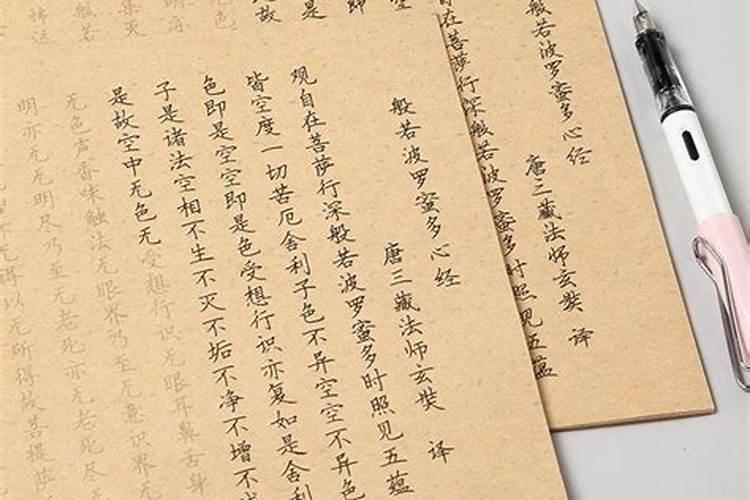 般若波罗蜜多心经
唐三藏法师玄奘 译
自在菩萨行深般若波罗蜜多时照见五蕴
般若波罗蜜多心经
唐三藏法师玄奘 译
观自在菩萨行深般若波罗蜜多时照见五蕴
皆空度一切苦厄舍利子色不异空空不异色
色即是空空即是色受想行识亦复如是舍利
子是诸法空相不生不灭不垢不净不增不
是故空中无色无受想行识无眼耳鼻舌身
无色声香味触法无眼界乃至无意识界无
明亦无无明尽乃至无老死亦无老死尽无
得以无所得故菩提萨
空
即
是
故